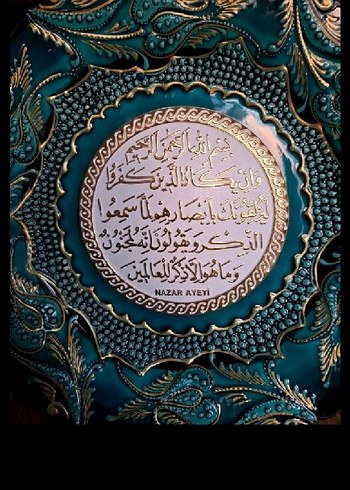 بسم الله الرحمن الرحيم
وإن يكاد الذين كفروا
ليزلقونك بأبصارهم لما سمعوا
الذكر ويقولون إنه لمجنون
وما هو إلا ذكر للعالمين
NAZAR AYETİ